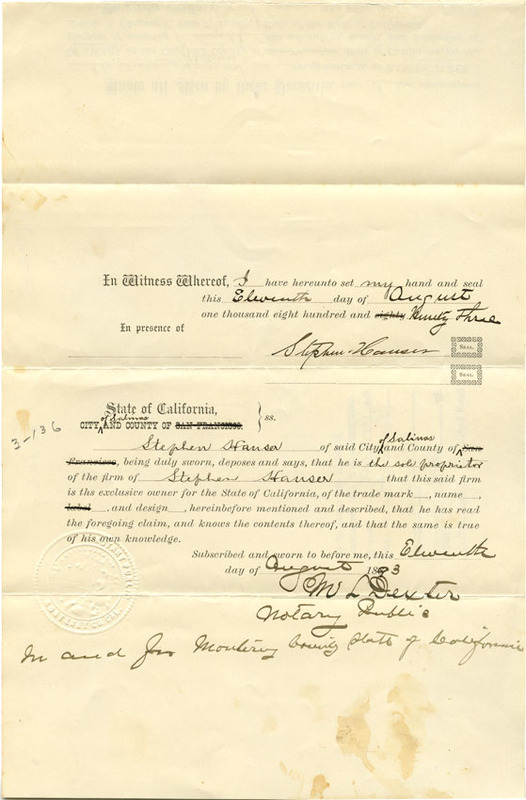 In Witness Whereof, I have hereunto set my hand and seal
this Elwenth day of August
one thousand eight hundred and eighty Ninety three
In presence of
Stephen Hanser
SEAL
SEAL
State of California,
of Salinas
CITY AND COUNTY OF SAN FRANCISCO. } ss.
3-136
of Salinas
Stephen Hanser of said City and County of San
Francisco, being duly sworn, deposes and says, that he is the sole proprietor
of the firm of Stephen Hanser that this said firm
is ths exclusive owner for the State of California, of the trade mark, name,
label, and design, hereinbefore mentioned and described, that he has read
the foregoing claim, and knows the contents thereof, and that the same is true
of his own knowledge.
Subscribed and sworn to before me, this Elwenth
day of August 1893
M L Dexter
Notary Public
In and for Monterey County State of California